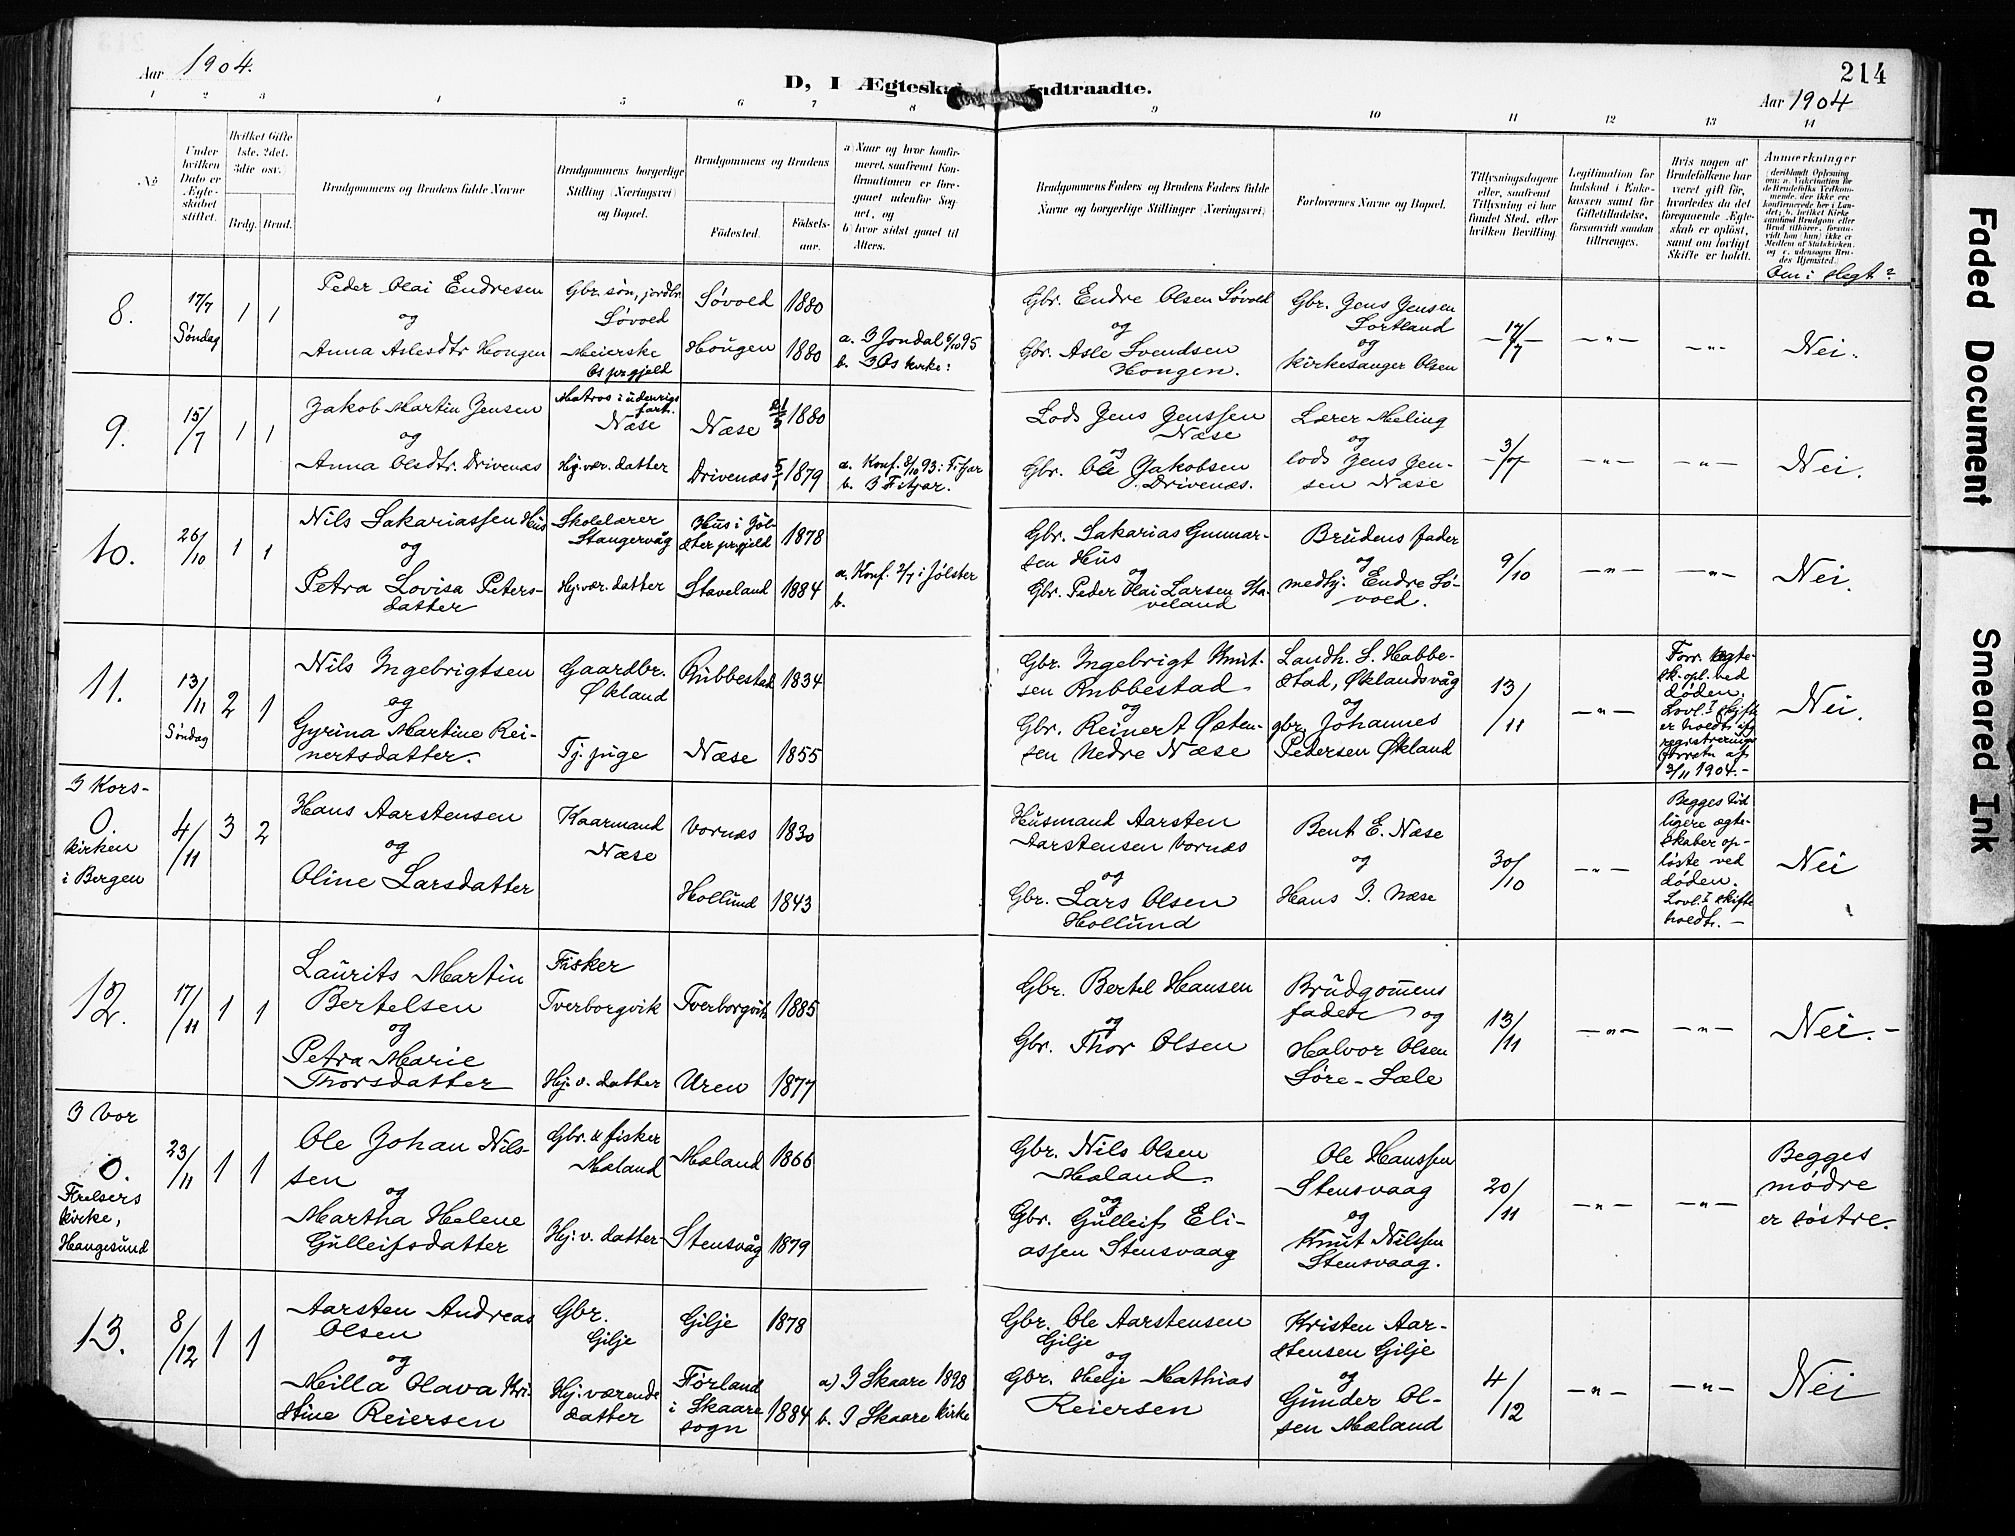 Aar 1904.
D, I Ægteska
Indtraadte.
214
Aar 1904
1 2 3 4 5 6 7 8 9 10 11 12 13 14
No
Under hvilken Dato er Ægteskabet stiftet.
Hvilket Gifte 1ste, 2det, 3die osv.
Brdg. Brud.
Brudgommens og Brudens fulde Navne
Brudgommens borgerlige Stilling (Næringsvei) og Bopæl.
Brudgommens og Brudens
Fødested.
Fødselsaar.
a) Naar og hvor konfirmeret, saafremt Konfirmationen er foregaaet udenfor Sognet, og
b) hvor sidst gaaet til Alters.
Brudgommens Faders og Brudens Faders fulde Navne og borgerlige Stillinger (Næringsvei)
Forlovernes Navne og Bopæl.
Tillysningsdagene eller, saafremt Tillysning ei har fundet Sted, efter hvilken Bevilling
Legitimation for Indskud i Enkekassen samt for Giftetilladelse, forsaavidt saadan tiltrænges.
Hvis nogen af Brudefolkene har været gift før, hvorledes da det foregaaende Ægteskab er opløst, samt om lovligt Skifte er holdt.
Anmærkninger
Om i slegt?
8.
17/7
Søndag
1 1
Peder Olai Endresen
og
Anna Aslesdtr Hougen
Gbr. søn, jordbr.
Søvold
Meierske
Os prgjeld
Søvold
Hougen
1880
1880
a. I Jondal 6/10 95
b. I Os kirke:
Gbr. Endre Olsen Søvold
og
Gbr. Asle Svendsen
Hougen.
Gbr. Jens Jensen
Sortland
og
kirkesanger Olsen
17/7
-"-
-"-
Nei.
9.
15/7
1 1
Jakob Martin Jensen
og
Anna Olsdtr. Drivenæs
Matros i udenrigs
fart.
Næse
Hj. vær. datter
Næse
Drivenæs
1880
1879
a. Konf. 8/10 93 i Fitjar
b. I Fitjar.
Lods Jens Jenssen
Næse
og
Gbr. Ole Jakobsen
Drivenæs.
Lærer Meling
og
lods Jens Jen-
sen Næse
-3/7-
-"-
-"-
Nei.
10.
26/10
1 1
Nils Sakariassen Hus
og
Petra Lovisa Peters-
datter
Skolelærer
Stangervåg
Hj. vær. datter
Hus i Jøl-
ster prgjeld
Staveland
1878
1884
a. Konf. 2/7 i Jølster
b.
Gbr. Sakarias Gunnar-
sen Hus
og
Gbr. Peder Olai Larsen Sta-
veland
Brudens fader
og
medhj. Endre Sø-
vold.
9/10
-"-
-"-
Nei.
11.
13/11
Søndag
2 1
Nils Ingebrigtsen
og
Gyrina Martine Rei-
nertsdatter.
Gaardbr.
Økland
Tj. pige
Rubbestad
Næse
1834
1855
Gbr. Ingebrigt Knut-
sen Rubbestad.
og
Gbr. Reinert Østen-
sen Nedre Næse
Landh. S. Habbe-
stad, Øklandsvåg
og
gbr. Johannes
Pedersen Økland
13/11
-"-
Forr. ægte-
sk. opl. ved
døden.
Lovl. skifte
er holdt ifg.
registrerings
forretn. af
3/11 1904.-
Nei.
I Kors-
0
kirken
i Bergen
4/11
3 2
Hans Aarstensen
og
Oline Larsdatter
Kaarmand
Næse
Vornæs
Hollund
1830
1843
Husmand Aarsten
Aarstensen Vornæs
og
Gbr. Lars Olsen
Hollund
Bent E. Næse
og
Hans J. Næse
30/10
-"-
Begges tid-
ligere ægte-
skaber op-
løste ved
døden.
Lovl. skifte
holdt.-
Nei
12.
17/11
1 1
Laurits Martin
Bertelsen
og
Petra Marie
Thorsdatter
Fisker
Tverborgvik
Hj. v. datter
Tverborgvik
Uren
1885
1877
Gbr. Bertel Hansen
og
Gbr. Thor Olsen
Brudgomens
fader og
Halvor Olsen
Søre-Sæle
13/11
-"-
-"-
Nei.-
I Vor
0.
Frelsers
kirke,
Haugesund
23/11
1 1
Ole Johan Nils-
sen
og
Martha Helene
Gulleifsdatter
Gbr. & fisker
Mæland
Hj. v. datter
Mæland
Stensvåg
1866
1879
Gbr. Nils Olsen
Mæland.
og
Gbr. Gulleif Eli-
assen Stensvaag
Ole Hanssen
Stensvaag
og
Knut Nilssen
Stensvaag.
20/11
-"-
-"-
Begges
mødre
er søstre.
13.
8/12
1 1
Aarsten Andreas
Olsen
og
Milla Olava Kri-
stine Reiersen
Gbr.
Gilje
Hj. værende
datter
Gilje
Førland
i Skaare
sogn
1878
1884
a) I Skaare 1898
b. I Skaare kirke
Gbr. Ole Aarstensen
Gilje
og
Gbr. Helje Mathias
Reiersen
Kristen Aar-
stensen Gilje
og
Gunder Ol-
sen Mæland
4/12
-"-
-"-
Nei
Faded Document
Smeared Ink